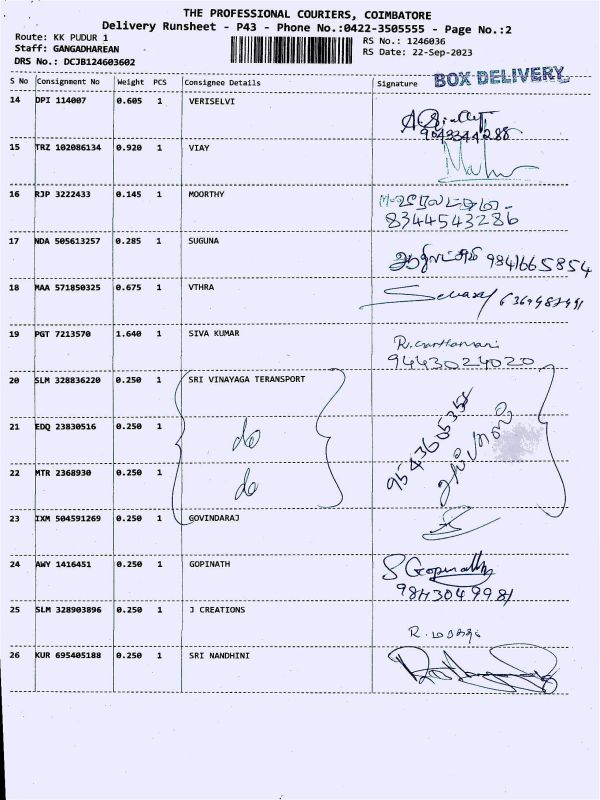 THE PROFESSIONAL COURIERS, COIMBATORE
Delivery Runsheet - P43 - Phone No.:0422-3505555 - Page No.:2
Route: KK PUDUR 1
RS No.: 1246036
Staff: GANGADHAREAN
RS Date: 22-Sep-2023
DRS No.: DCJB124603602
BOX DELIVERY
S No Consignment No Weight PCS Consignee Details Signature
14 DPI 114007 0.605 1 VERISELVI
9043344288
15 TRZ 102086134 0.920 1 VIJAY
16 RJP 3222433 0.145 1 MOORTHY
8344543286
17 NDA 505613257 0.285 1 SUGUNA
9841665854
18 MAA 571850325 0.675 1 VTHRA
19 PGT 7213570 1.640 1 SIVA KUMAR
9443024020
20 SLM 328836220 0.250 1 SRI VINAYAGA TERANSPORT
21 EDQ 23830516 0.250 1 do
22 MTR 2368930 0.250 1 do
23 IXM 504591269 0.250 1 GOVINDARAJ
24 AWY 1416451 0.250 1 GOPINATH
S Gopinath
9843049981
25 SLM 328903896 0.250 1 J CREATIONS
26 KUR 695405188 0.250 1 SRI NANDHINI